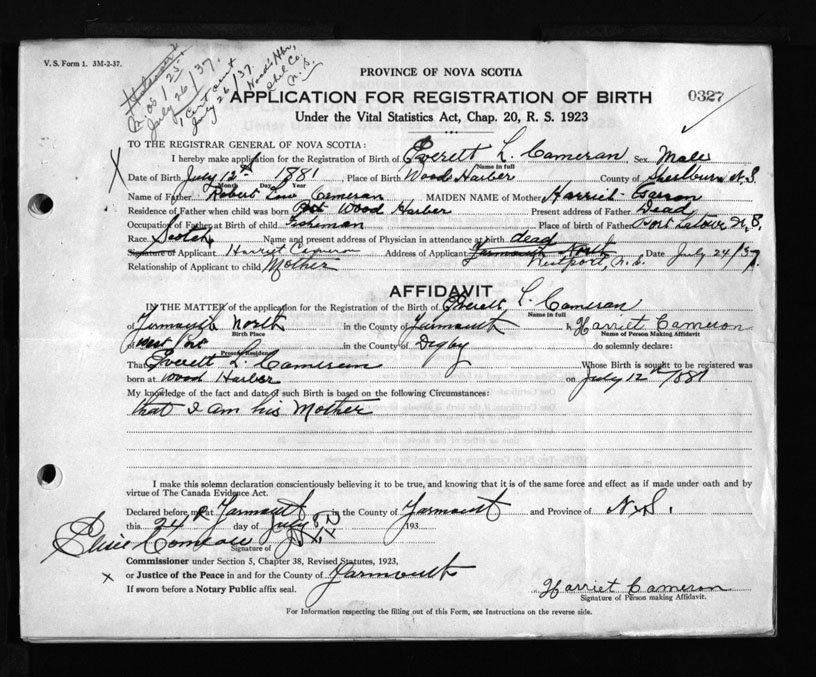 V. S. Form 1. 3M-2-37.
July 26/37.
1 Cert sent
July 26/37.
Wood's Hbr,
Shel Co.
N. S.
PROVINCE OF NOVA SCOTIA
APPLICATION FOR REGISTRATION OF BIRTH 0327
Under the Vital Statistics Act, Chap. 20, R. S. 1923
TO THE REGISTRAR GENERAL OF NOVA SCOTIA:
I hereby make application for the Registration of Birth of Everett L. Cameran Sex Male
Name in full
Date of Birth July 12th 1881 Place of Birth Woods Harber County of Shelburn N.S.
Month Day Year
Name of Father Robert Cameran MAIDEN NAME of Mother Harriet
Residence of Father when child was born Wood Harber Present address of Father Dead
Occupation of Father at Birth of child Fisheman Place of Birth of Father Port Latour N.S.
Race Scotch Name and present address of Physician in attendance at birth dead
Signature of Applicant Harriet Cameron Address of Applicant Yarmouth North Westport, N.S. Date July 24/37.
Relationship of Applicant to child Mother
AFFIDAVIT
IN THE MATTER of the application for the Registration of the Birth of Everett L. Cameran
Name in full
of Yarmouth North in the County of Yarmouth I, Harriet Cameron
Birth Place Name of Person Making Affidavit
of West Port in the County of Digby do solemnly declare:
Present Residence
That Everett L. Cameran Whose Birth is sought to be registered was
born at Wood Harber on July 12th 1881
My knowledge of the fact and date of such Birth is based on the following Circumstances:
that I am his Mother
I make this solemn declaration conscientiously believing it to be true, and knowing that it is of the same force and effect as if made under oath and by
virtue of The Canada Evidence Act.
Declared before me at Yarmouth in the County of Yarmouth and Province of N.S.
this 24 day of July 193
Elsie Comeau
Signature of
Commissioner under Section 5, Chapter 38, Revised Statutes, 1923,
x or Justice of the Peace in and for the County of Yarmouth
If sworn before a Notary Public affix seal.
Harriet Cameron
Signature of Person making Affidavit.
For Information respecting the filling out of this Form, see Instructions on the reverse side.